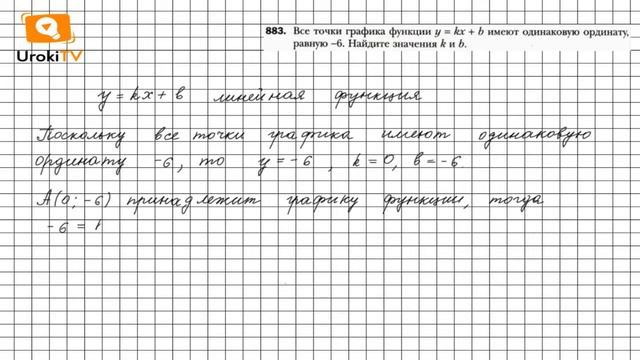 UrokiTV
883. Все точки графика функции y = kx + b имеют одинаковую ординату,
равную –6. Найдите значения k и b.
y = kx + b линейная функция
Поскольку все точки графика имеют одинаковую
ординату -6, то y = -6, k = 0, b = -6
A(0; -6) принадлежит графику функции, тогда
-6 =